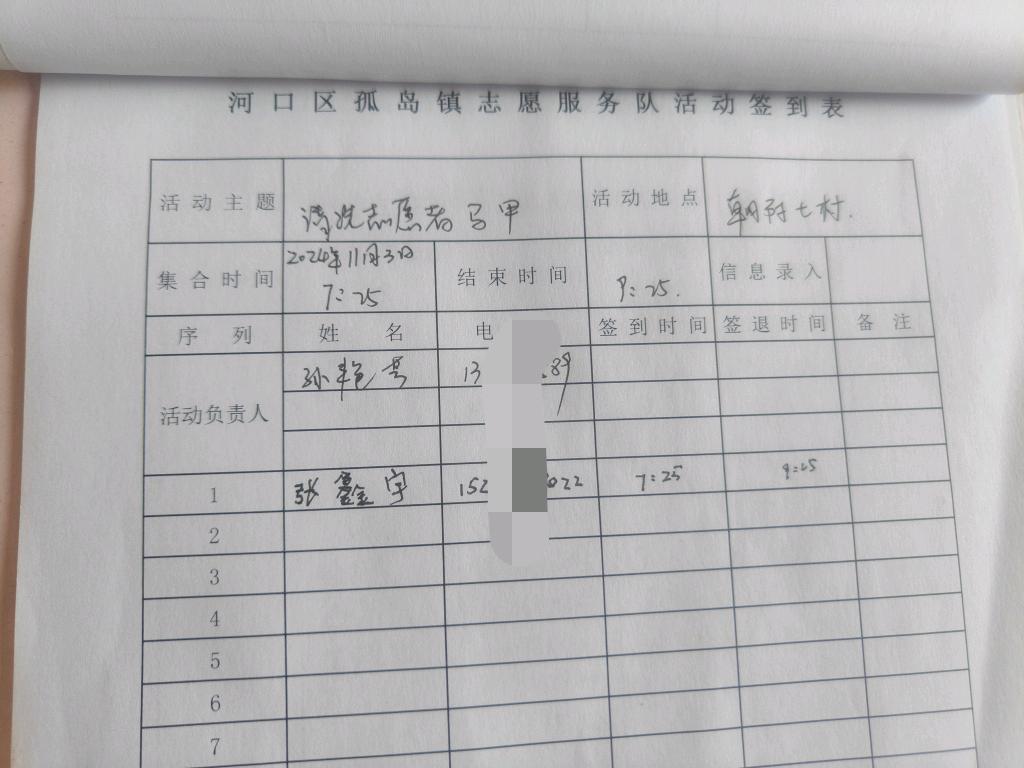 河口区孤岛镇志愿服务队活动签到表
活动主题 清洗志愿者马甲 活动地点 朝阳七村.
集合时间 2024年11月3日 7:25 结束时间 9:25. 信息录入
序列 姓名 电 签到时间 签退时间 备注
活动负责人 孙艳 13 89
1 张鑫宇 152 022 7:25 9:25
2
3
4
5
6
7